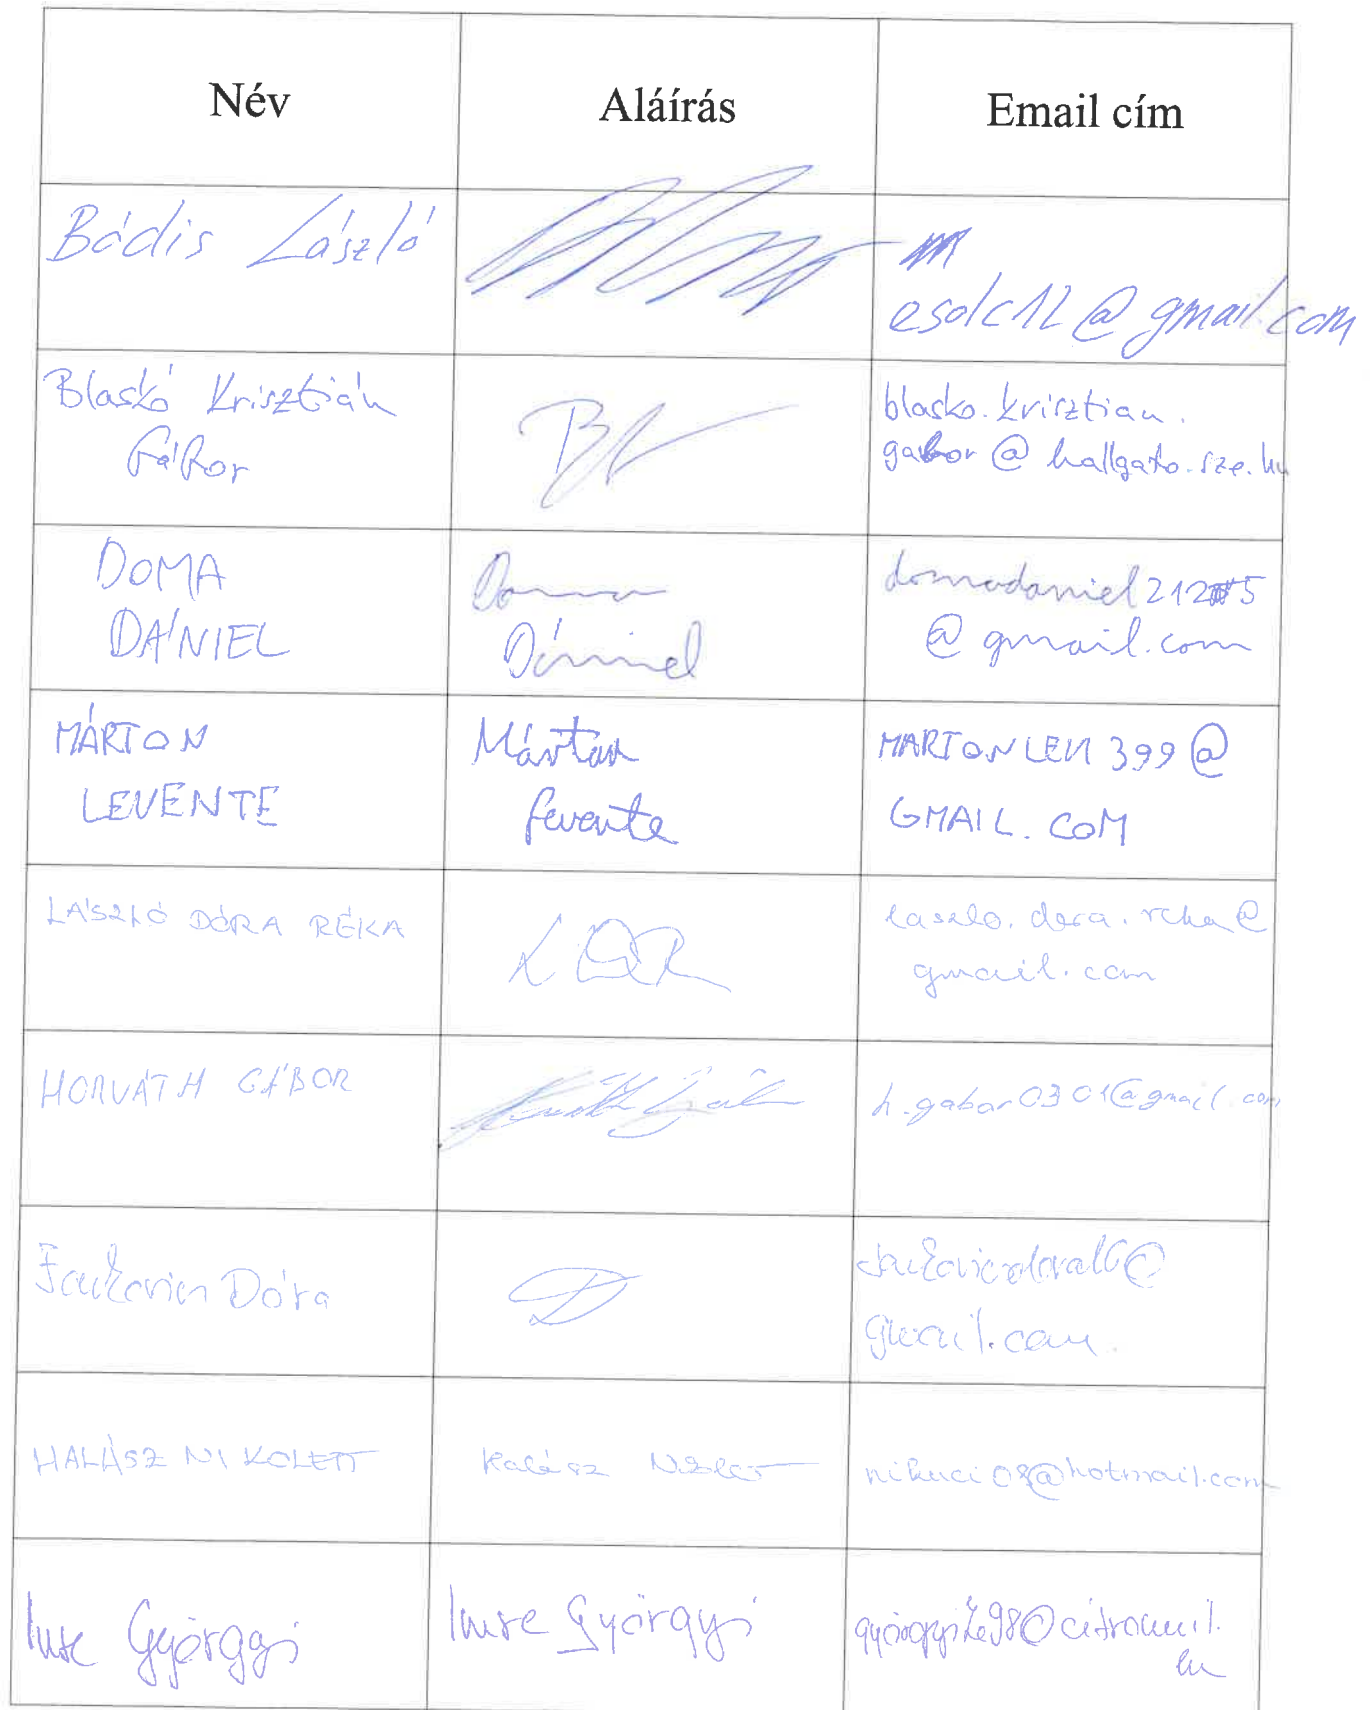 Név
Aláírás
Email cím
Bádis László
@gmail.com
Blaskó Krisztián
Gábor
blasko.krisztian.
gabor@hallgato.sze.hu
DOMA
DÁNIEL
Doma
Dániel
domadaniel
@gmail.com
MÁRTON
LEVENTE
Márton
Levente
MARTONLEV399@
GMAIL.COM
LÁSZLÓ DÓRA RÉKA
LDR
laszlo.dora.reka@
gmail.com
HORVÁTH GÁBOR
h.gabor0301@gmail.com
Dóra
gmail.com
HALÁSZ NIKOLETT
Halász
nikuci08@hotmail.com
Imre Györgyi
Imre Györgyi